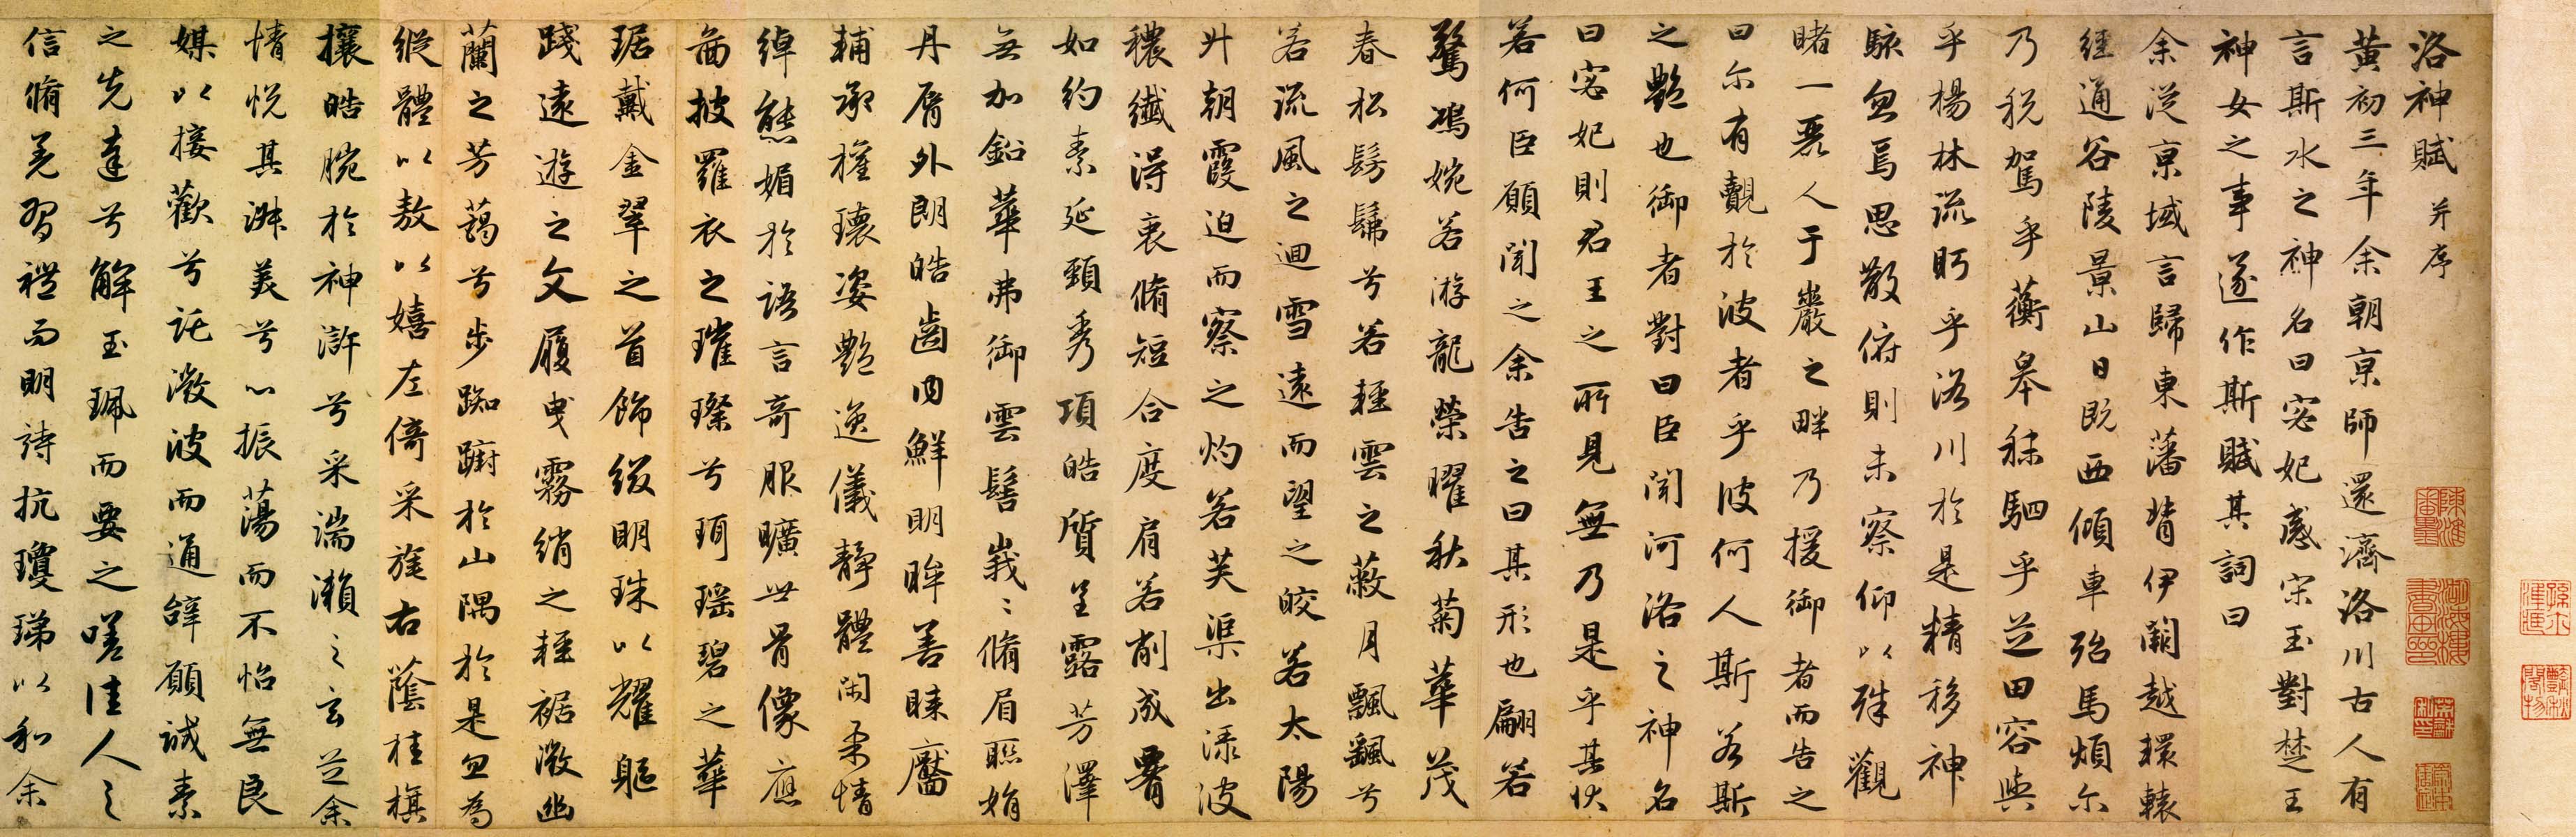 洛神賦 并序
黃初三年余朝京師還濟洛川古人有
言斯水之神名曰宓妃感宋玉對楚王
神女之事遂作斯賦其詞曰
余從京域言歸東藩背伊闕越轘轅
經通谷陵景山日既西傾車殆馬煩尔
乃稅駕乎蘅皋秣駟乎芝田容與
乎楊林流眄乎洛川於是精移神
駭忽焉思散俯則未察仰以殊觀
睹一麗人于巖之畔乃援御者而告之
曰尔有覿於彼者乎彼何人斯若斯
之艷也御者對曰臣聞河洛之神名
曰宓妃則君王之所見無乃是乎其狀
若何臣願聞之余告之曰其形也翩若
驚鴻婉若游龍榮曜秋菊華茂
春松髣髴兮若輕雲之蔽月飄颻兮
若流風之迴雪遠而望之皎若太陽
升朝霞迫而察之灼若芙渠出淥波
穠纖得衷脩短合度肩若削成署
如約素延頸秀項皓質呈露芳澤
無加鉛華弗御雲髻峩〻脩眉聯娟
丹脣外朗皓齒內鮮明眸善睞靨
輔承權瓌姿艷逸儀靜體閑柔情
綽態媚於語言奇服曠世骨像應
圖披羅衣之璀璨兮珥瑶碧之華
琚戴金翠之首飾綴明珠以耀軀
踐遠遊之文履曳霧綃之輕裾微幽
蘭之芳藹兮步踟躕於山隅於是忽焉
縱體以敖以嬉左倚采旄右蔭桂旗
攘皓腕於神滸兮采湍瀨之玄芝余
情悅其淑美兮心振蕩而不怡無良
媒以接歡兮託微波而通辭願誠素
之先達兮解玉珮而要之嗟佳人之
信脩羌習禮而明詩抗瓊珶以和余